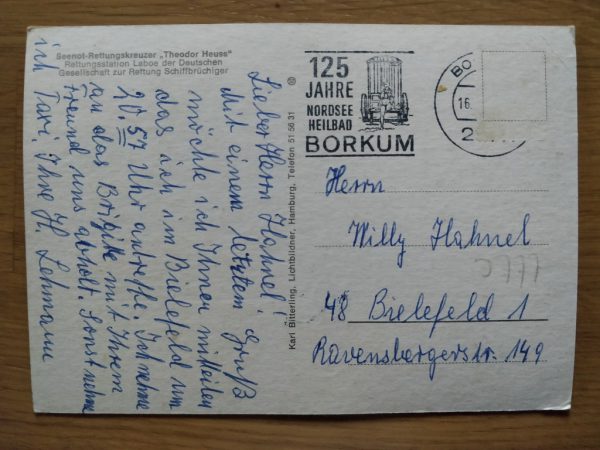 Seenot-Rettungskreuzer „Theodor Heuss“
Rettungsstation Laboe der Deutschen
Gesellschaft zur Rettung Schiffbrüchiger
Lieber Herr Hahnel!
Mit einem letzten Gruß
möchte ich Ihnen mitteilen
das ich in Bielefeld um
20.57 Uhr antreffe. Ich nehme
an das Brigitte mit Ihrem
Freund uns abholt. Sonst nehme
ich Taxi. Ihre H. Lehmann
Karl Bitterling, Lichtbildner, Hamburg, Telefon 51 56 31
125
JAHRE
NORDSEE
HEILBAD
BORKUM
BO
16.
2
Herrn
Willy Hahnel
48 Bielefeld 1
Ravensbergerstr. 149